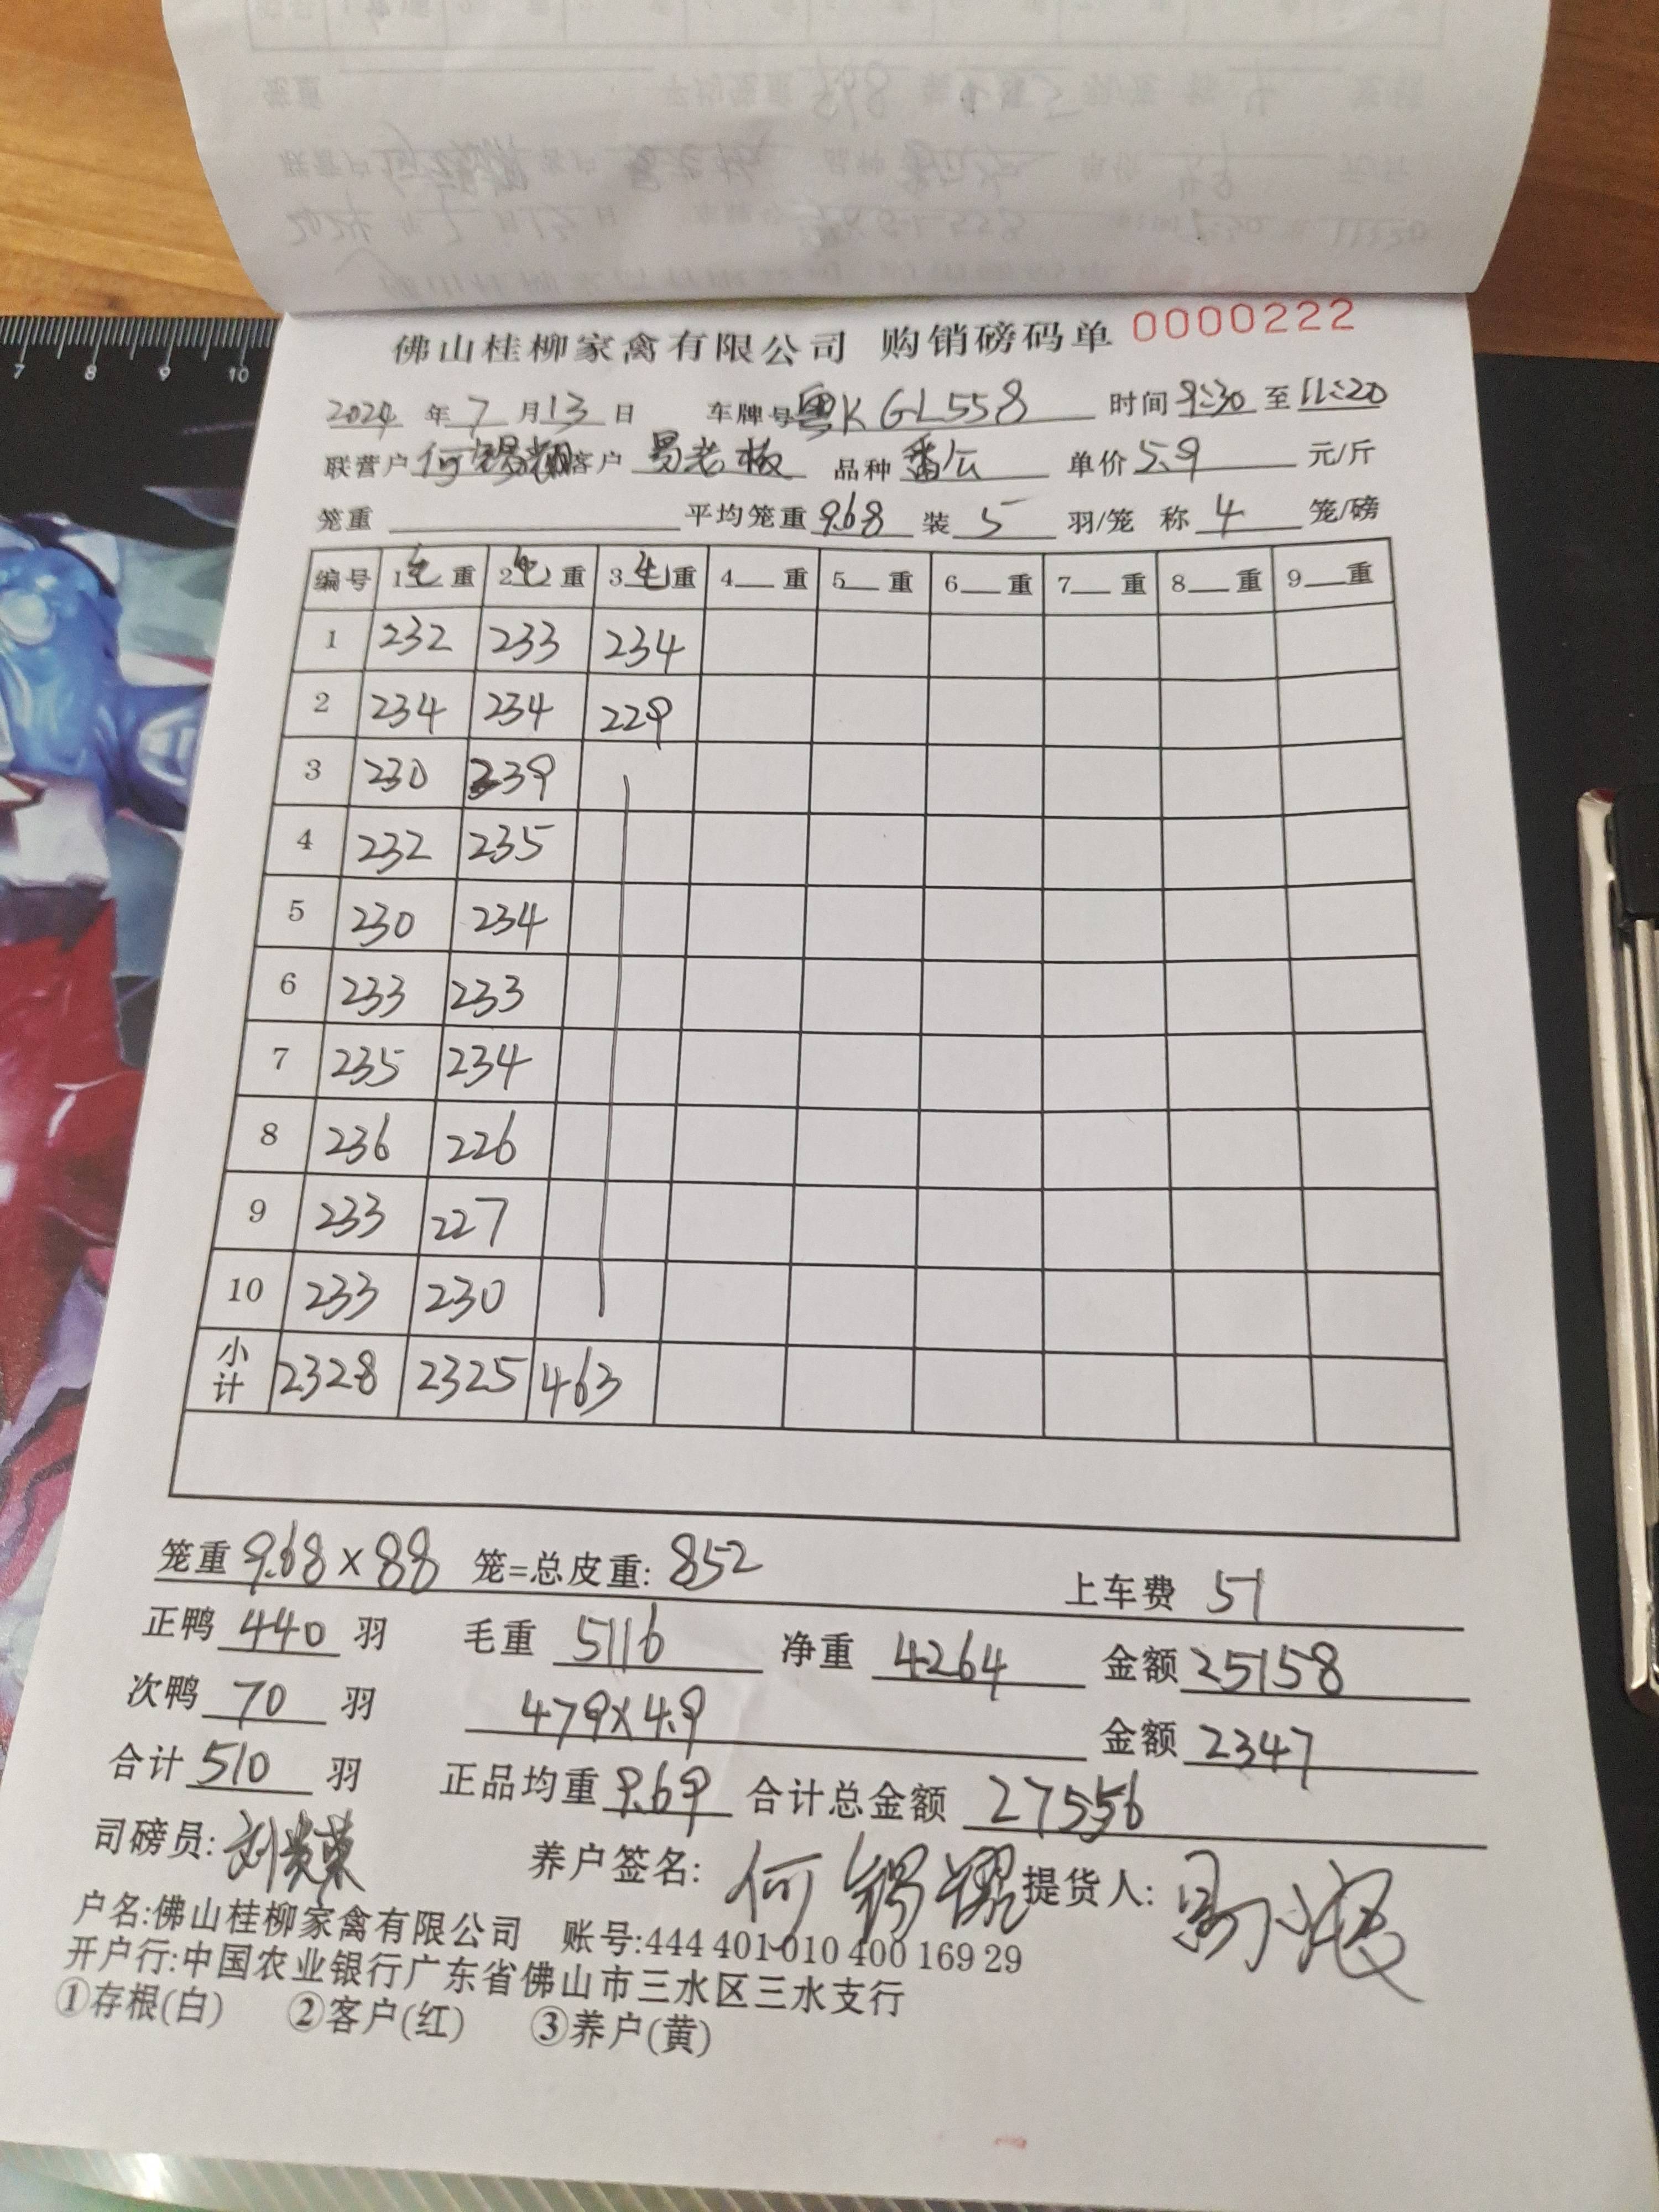 佛山桂柳家禽有限公司 购销磅码单 0000222
2024 年 7 月 13 日 车牌号 粤K GL558 时间 9:30 至 11:20
联营户 何锡 客户 易老板 品种 番公 单价 5.9 元/斤
笼重 平均笼重 9.68 装 5 羽/笼 称 4 笼/磅
编号 1毛重 2毛重 3毛重 4__重 5__重 6__重 7__重 8__重 9__重
1 232 233 234
2 234 234 229
3 230 239
4 232 235
5 230 234
6 233 233
7 235 234
8 236 226
9 233 227
10 233 230
小计 2328 2325 463
笼重 9.68×88 笼=总皮重: 852 上车费 51
正鸭 440 羽 毛重 5116 净重 4264 金额 25158
次鸭 70 羽 479×4.9 金额 2347
合计 510 羽 正品均重 9.69 合计总金额 27556
司磅员: 刘 养户签名: 何锡 提货人:
户名:佛山桂柳家禽有限公司 账号:444 401 010 400 169 29
开户行:中国农业银行广东省佛山市三水区三水支行
①存根(白) ②客户(红) ③养户(黄)